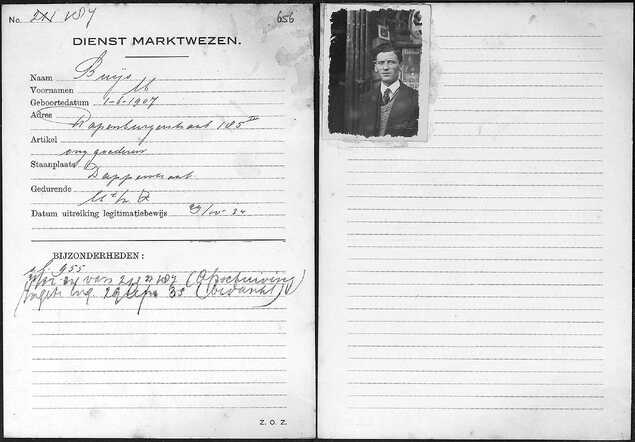 No. 187 656
DIENST MARKTWEZEN.
Naam Buijs
Voornamen M
Geboortedatum 1-6-1907
Adres Rapenburgerstraat 185 III
Artikel
ong goederen
Staanplaats Dapperstraat
Gedurende
M t/m Z
Datum uitreiking legitimatiebewijs 23/IV-34
BIJZONDERHEDEN:
955
van 187 (Afschrijving
Ingetr. 29 35 (bedankt)
Z. O. Z.